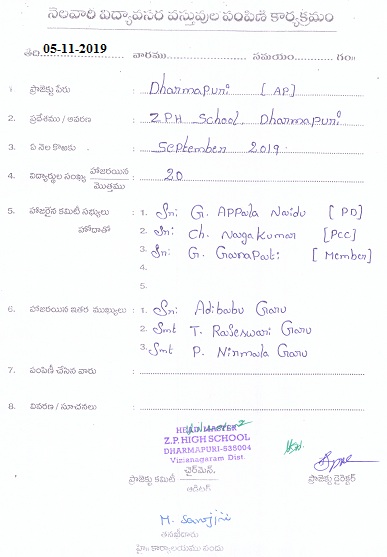 నెలవారి విద్యావసర వస్తువుల పంపిణి కార్యక్రమం
తేది 05-11-2019 వారము సమయం గం॥
1. ప్రాజెక్టు పేరు : Dharmapuri [AP]
2. ప్రదేశము / ఆవరణ : Z.P.H School, Dharmapuri
3. ఏ నెల కొఱకు : September 2019
4. విద్యార్థుల సంఖ్య హాజరయిన / మొత్తము : 20
5. హాజరైన కమిటీ సభ్యులు : 1. Sri: G. Appala Naidu [PD]
హోదాతో 2. Sri: Ch. Naga Kumar [PCC]
3. Sri: G. Ganapati [Member]
4.
5.
6. హాజరయిన ఇతర ముఖ్యులు : 1. Sri: Adibabu Garu
2. Smt T. Rajeswari Garu
3. Smt P. Nirmala Garu
7. పంపిణీ చేసిన వారు :
8. వివరణ / సూచనలు :
HEAD MASTER
Z.P. HIGH SCHOOL
DHARMAPURI-535004
Vizianagaram Dist.
ప్రాజెక్టు కమిటీ ఛైర్‌మెన్ / ఆడిటర్ ప్రాజెక్టు డైరెక్టర్
M. Sarojini
తనిఖీదారు